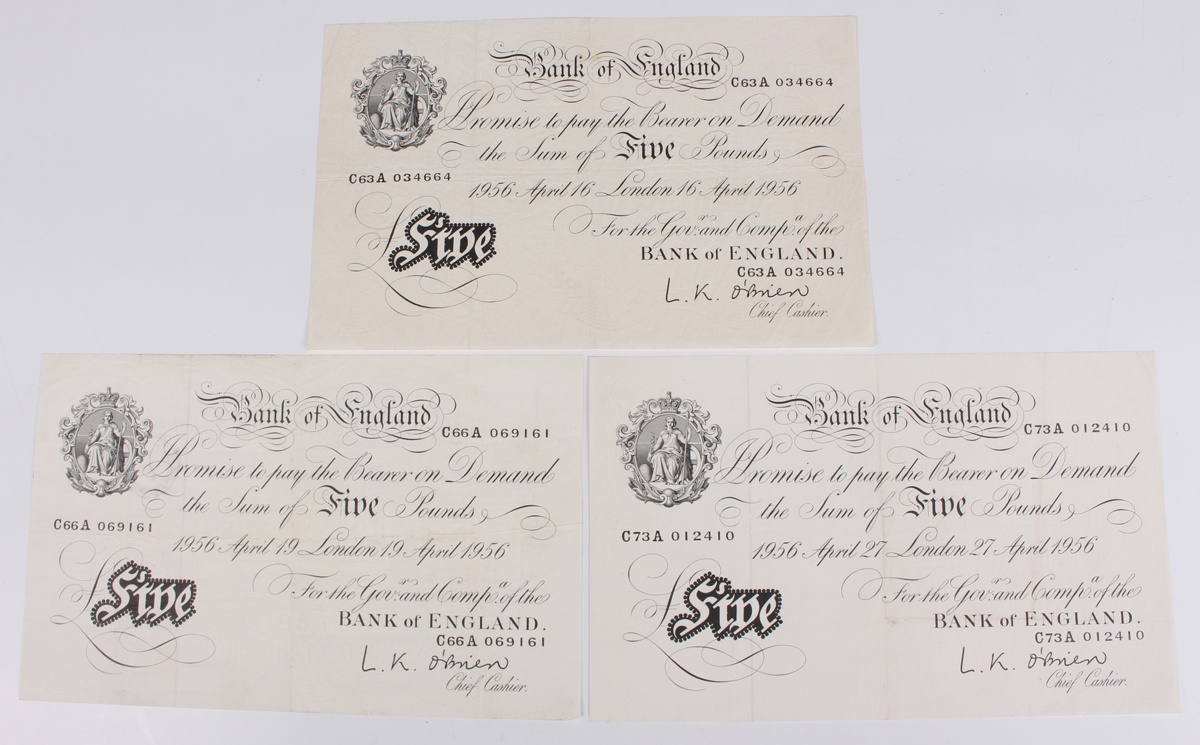 Bank of England
C63A 034664
I Promise to pay the Bearer on Demand
the Sum of Five Pounds
C63A 034664
1956 April 16 London 16 April 1956
For the Govr. and Compa. of the
BANK of ENGLAND.
£Five
C63A 034664
L. K. O'Brien
Chief Cashier.
Bank of England
C66A 069161
I Promise to pay the Bearer on Demand
the Sum of Five Pounds
C66A 069161
1956 April 19 London 19 April 1956
For the Govr. and Compa. of the
£Five
BANK of ENGLAND.
C66A 069161
L. K. O'Brien
Chief Cashier.
Bank of England
C73A 012410
I Promise to pay the Bearer on Demand
the Sum of Five Pounds
C73A 012410
1956 April 27 London 27 April 1956
For the Govr. and Compa. of the
£Five
BANK of ENGLAND.
C73A 012410
L. K. O'Brien
Chief Cashier.